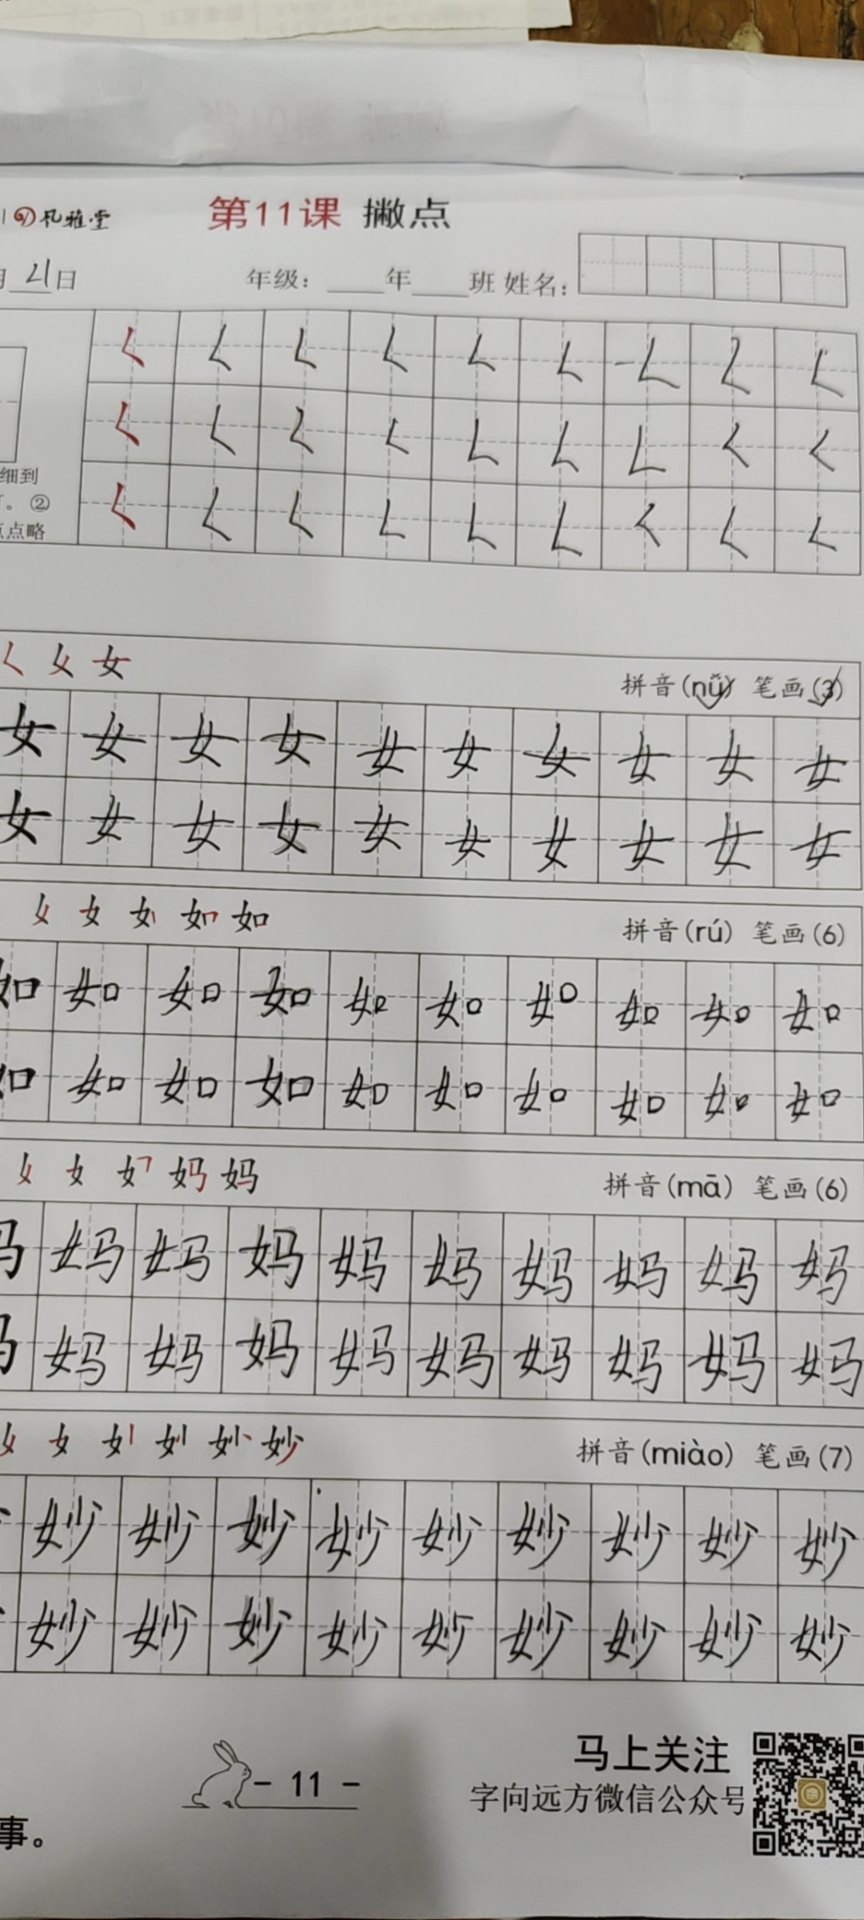 风雅堂 第11课 撇点
月 21日 年级：____年____班 姓名：
𡿨 𡿨 𡿨 𡿨 𡿨 𡿨 𡿨 𡿨 𡿨
𡿨 𡿨 𡿨 𡿨 𡿨 𡿨 𡿨 𡿨 𡿨
细到
。②
点略
𡿨 𡿨 𡿨 𡿨 𡿨 𡿨 𡿨 𡿨 𡿨
𡿨 女 女 拼音(nǚ) 笔画(3)
女 女 女 女 女 女 女 女 女 女
女 女 女 女 女 女 女 女 女 女
女 女 如 如 拼音(rú) 笔画(6)
如 如 如 如 如 如 如 如 如 如
如 如 如 如 如 如 如 如 如 如
女 女 妈 妈 拼音(mā) 笔画(6)
妈 妈 妈 妈 妈 妈 妈 妈 妈 妈
妈 妈 妈 妈 妈 妈 妈 妈 妈 妈
女 女 妙 拼音(miào) 笔画(7)
妙 妙 妙 妙 妙 妙 妙 妙 妙
妙 妙 妙 妙 妙 妙 妙 妙 妙
马上关注
- 11 -
字向远方微信公众号
事。